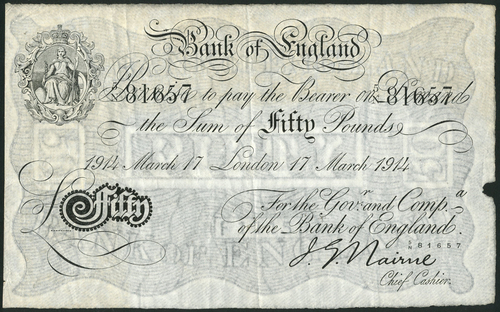 Bank of England
81657 81657
to pay the Bearer on Demand
the Sum of Fifty Pounds
1914 March 17 London 17 March 1914
For the Gov.r and Comp.a
of the Bank of England.
£Fifty
81657
J. G. Nairne
Chief Cashier.